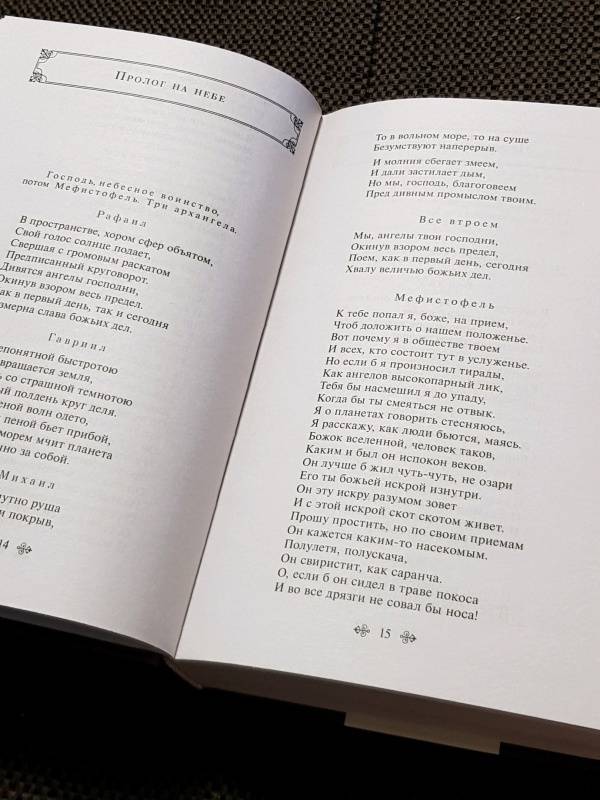 Пролог на небе
Господь, небесное воинство,
потом Мефистофель. Три архангела.
Рафаил
В пространстве, хором сфер объятом,
Свой голос солнце подает,
Свершая с громовым раскатом
Предписанный круговорот.
Дивятся ангелы господни,
Окинув взором весь предел.
как в первый день, так и сегодня
змерна слава божьих дел.
Гавриил
епонятной быстротою
вращается земля,
ь со страшной темнотою
ый полдень круг деля.
еной волн одето,
пеной бьет прибой,
морем мчит планета
чно за собой.
Михаил
путно руша
н покрыв,
14
То в вольном море, то на суше
Безумствуют наперерыв.
И молния сбегает змеем,
И дали застилает дым,
Но мы, господь, благоговеем
Пред дивным промыслом твоим.
Все втроем
Мы, ангелы твои господни,
Окинув взором весь предел,
Поем, как в первый день, сегодня
Хвалу величью божьих дел.
Мефистофель
К тебе попал я, боже, на прием,
Чтоб доложить о нашем положенье.
Вот почему я в обществе твоем
И всех, кто состоит тут в услуженье.
Но если б я произносил тирады,
Как ангелов высокопарный лик,
Тебя бы насмешил я до упаду,
Когда бы ты смеяться не отвык.
Я о планетах говорить стесняюсь,
Я расскажу, как люди бьются, маясь.
Божок вселенной, человек таков,
Каким и был он испокон веков.
Он лучше б жил чуть-чуть, не озари
Его ты божьей искрой изнутри.
Он эту искру разумом зовет
И с этой искрой скот скотом живет.
Прошу простить, но по своим приемам
Он кажется каким-то насекомым.
Полулетя, полускача,
Он свиристит, как саранча.
О, если б он сидел в траве покоса
И во все дрязги не совал бы носа!
15